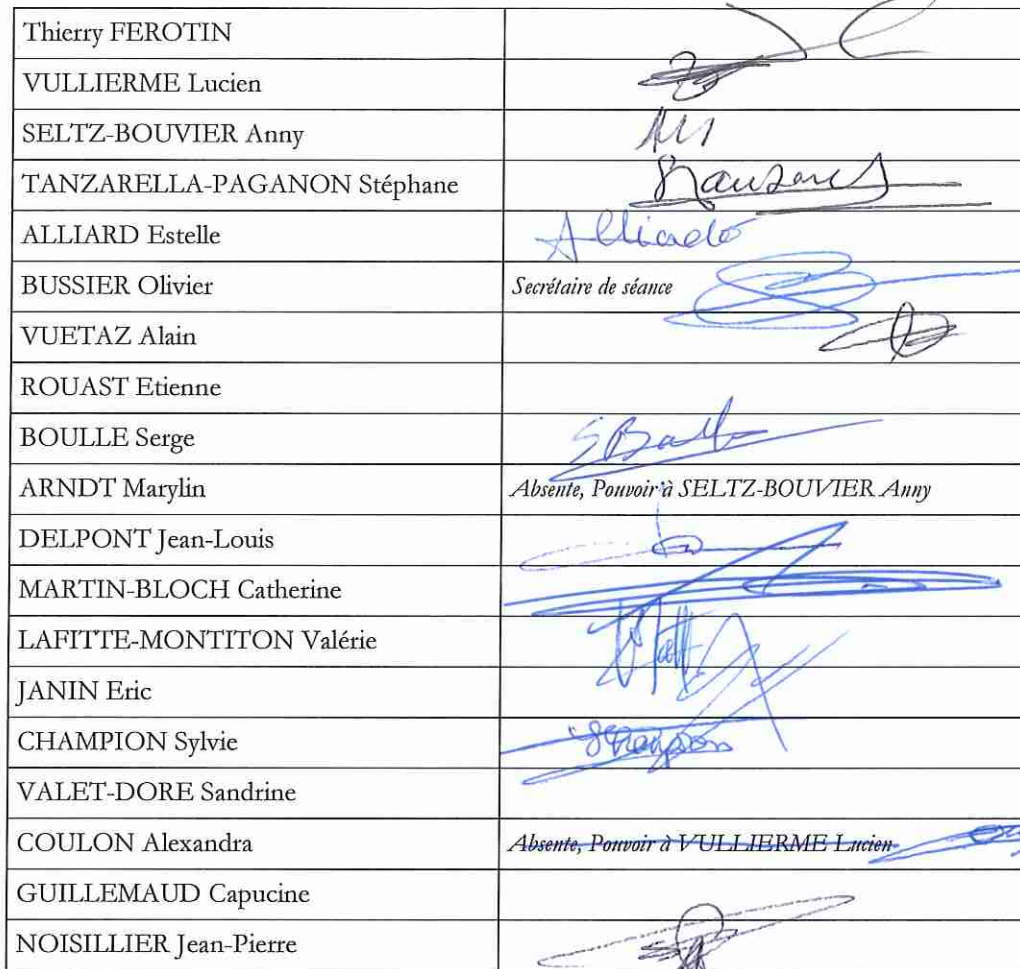 Thierry FEROTIN
VULLIERME Lucien
SELTZ-BOUVIER Anny
TANZARELLA-PAGANON Stéphane
ALLIARD Estelle
BUSSIER Olivier Secrétaire de séance
VUETAZ Alain
ROUAST Etienne
BOULLE Serge
ARNDT Marylin Absente, Pouvoir à SELTZ-BOUVIER Anny
DELPONT Jean-Louis
MARTIN-BLOCH Catherine
LAFITTE-MONTITON Valérie
JANIN Eric
CHAMPION Sylvie
VALET-DORE Sandrine
COULON Alexandra Absente, Pouvoir à VULLIERME Lucien
GUILLEMAUD Capucine
NOISILLIER Jean-Pierre